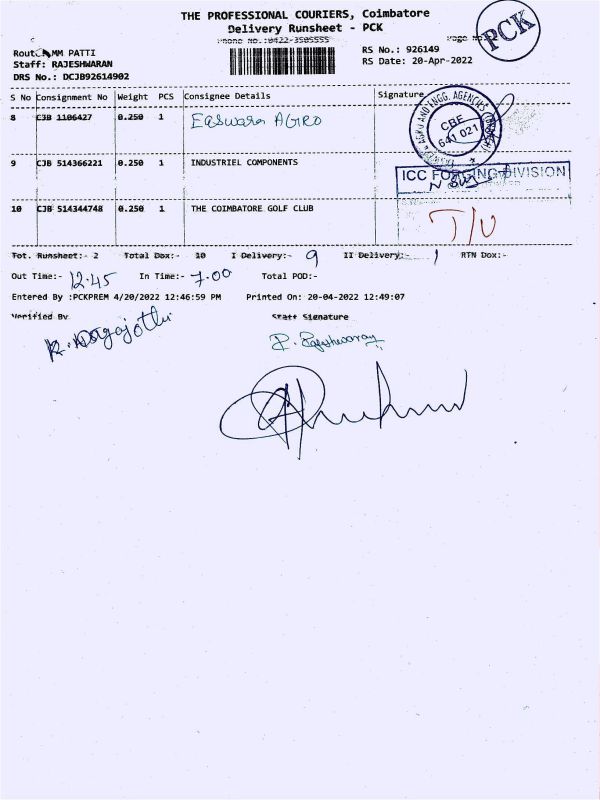 THE PROFESSIONAL COURIERS, Coimbatore
Delivery Runsheet - PCK
Phone No.:0422-3505555
PCK
MM PATTI
RS No.: 926149
Staff: RAJESHWARAN
RS Date: 20-Apr-2022
DRS No.: DCJB92614902
S No Consignment No Weight PCS Consignee Details Signature
8 CJB 1106427 0.250 1 Easwara AGRO
AGRO AND ENGG. AGENCIES
CBE
641 021
9 CJB 514366221 0.250 1 INDUSTRIEL COMPONENTS
ICC FORGING DIVISION
10 CJB 514344748 0.250 1 THE COIMBATORE GOLF CLUB
Tot. Runsheet:- 2 Total Dox:- 10 I Delivery:- 9 II Delivery:- 1 RTN Dox:-
Out Time:- 12.45 In Time:- 7.00 Total POD:-
Entered By :PCKPREM 4/20/2022 12:46:59 PM Printed On: 20-04-2022 12:49:07
Verified By Staff Signature